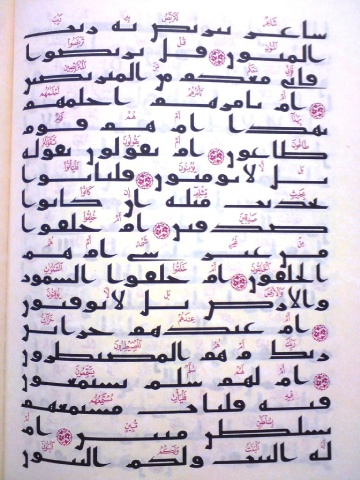 شاعر نتربص به ريب
المنون قل تربصوا
فإني معكم من المتربصين
أم تأمرهم أحلمهم
بهذا أم هم قوم
طاغون أم يقولون تقوله
بل لا يؤمنون فليأتوا
بحديث مثله إن كانوا
صدقين أم خلقوا
من غير شيء أم هم
الخلقون أم خلقوا السموت
والأرض بل لا يوقنون
أم عندهم خزائن
ربك أم هم المصيطرون
أم لهم سلم يستمعون
فيه فليأت مستمعهم
بسلطن مبين أم
له البنت ولكم البنون